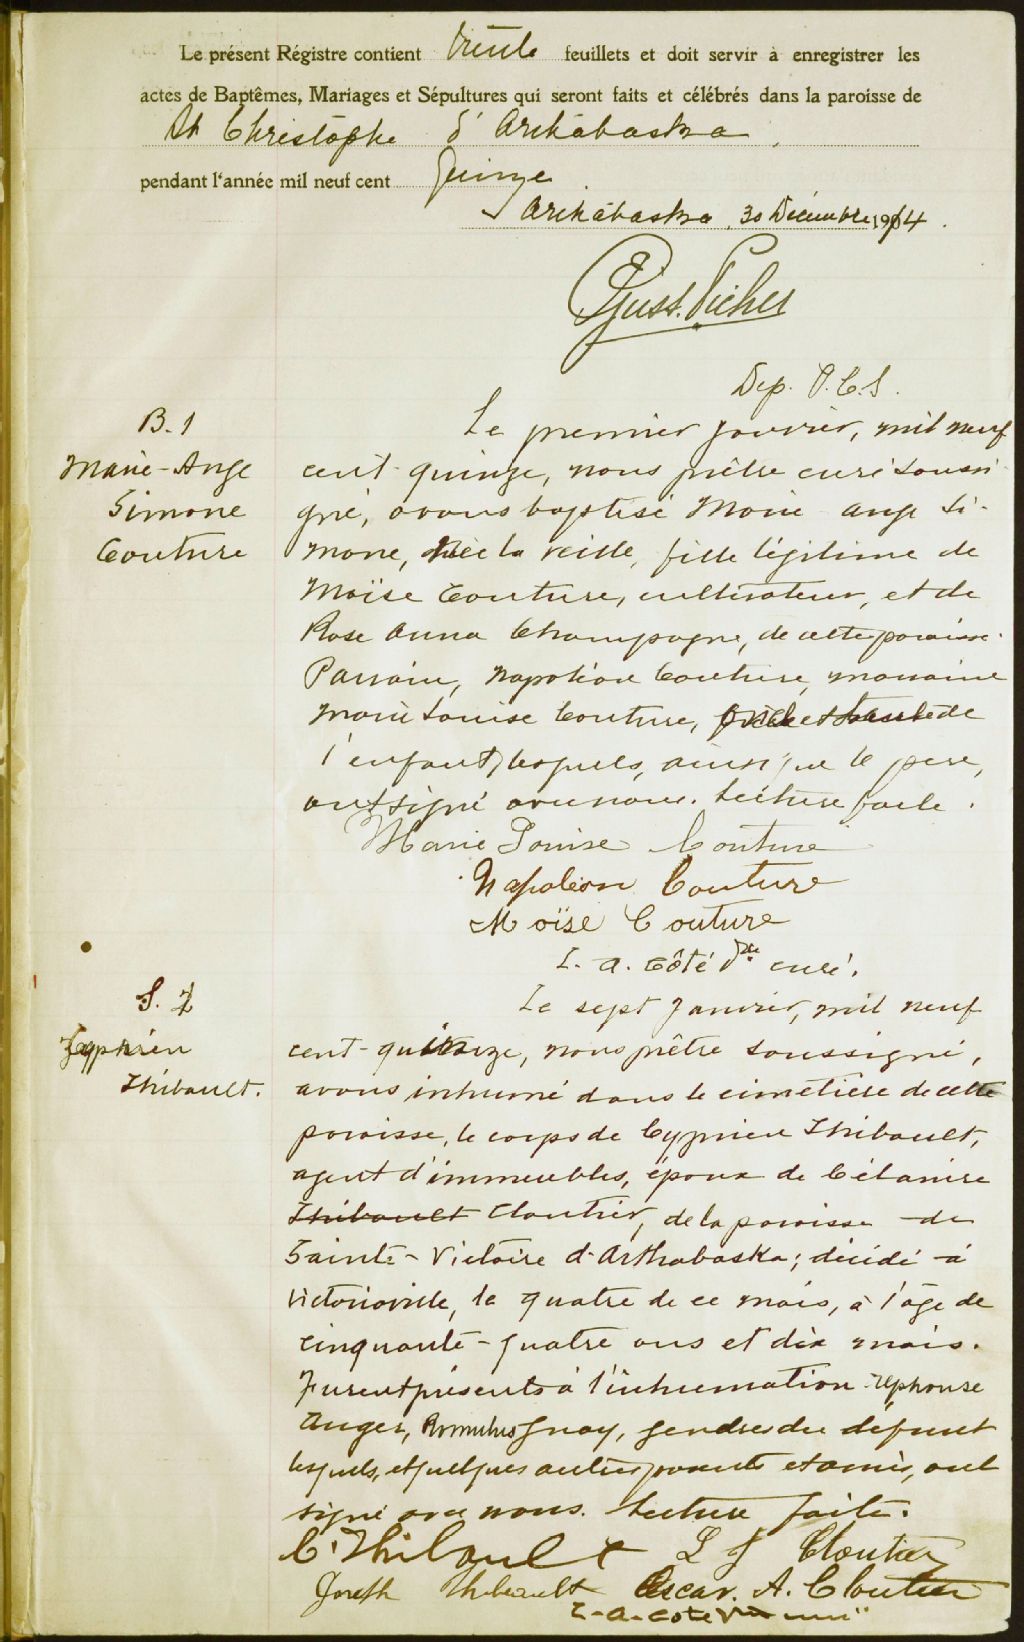 Le présent Régistre contient trente feuillets et doit servir à enregistrer les
actes de Baptêmes, Mariages et Sépultures qui seront faits et célébrés dans la paroisse de
St Christophe d'Arthabaska
pendant l'année mil neuf cent quinze
Arthabaska, 30 Décembre 1914.
Picher
Dep. P.C.S.
B.1
Marie-Ange
Simone
Couture
Le premier janvier, mil neuf
cent-quinze, nous prêtre curé soussi-
gné, avons baptisé Marie Ange Si-
mone, née la veille, fille légitime de
Moïse Couture, cultivateur, et de
Rose Anna Champagne, de cette paroisse.
Parrain, Napoléon Couture, marraine
Marie Louise Couture, oncle et tante de
l'enfant, lesquels, ainsi que le père,
ont signé avec nous. Lecture faite.
Marie Louise Couture
Napoléon Couture
Moïse Couture
L. A. Côté Ptre curé.
S. 2
Cyprien
Thibault.
Le sept janvier, mil neuf
cent-quinze, nous prêtre soussigné,
avons inhumé dans le cimetière de cette
paroisse, le corps de Cyprien Thibault,
agent d'immeubles, époux de Célanire
Thibault Cloutier, de la paroisse de
Sainte-Victoire d'Arthabaska; décédé à
Victoriaville, le quatre de ce mois, à l'âge de
cinquante-quatre ans et dix mois.
Furent présents à l'inhumation Alphonse
Auger, Romulus Guay, gendres du défunt
lesquels, et quelques autres parents et amis, ont
signé avec nous. Lecture faite.
C. Thibault L J Cloutier
Joseph Thibault Oscar. A. Cloutier
L-A-Coté Ptre curé